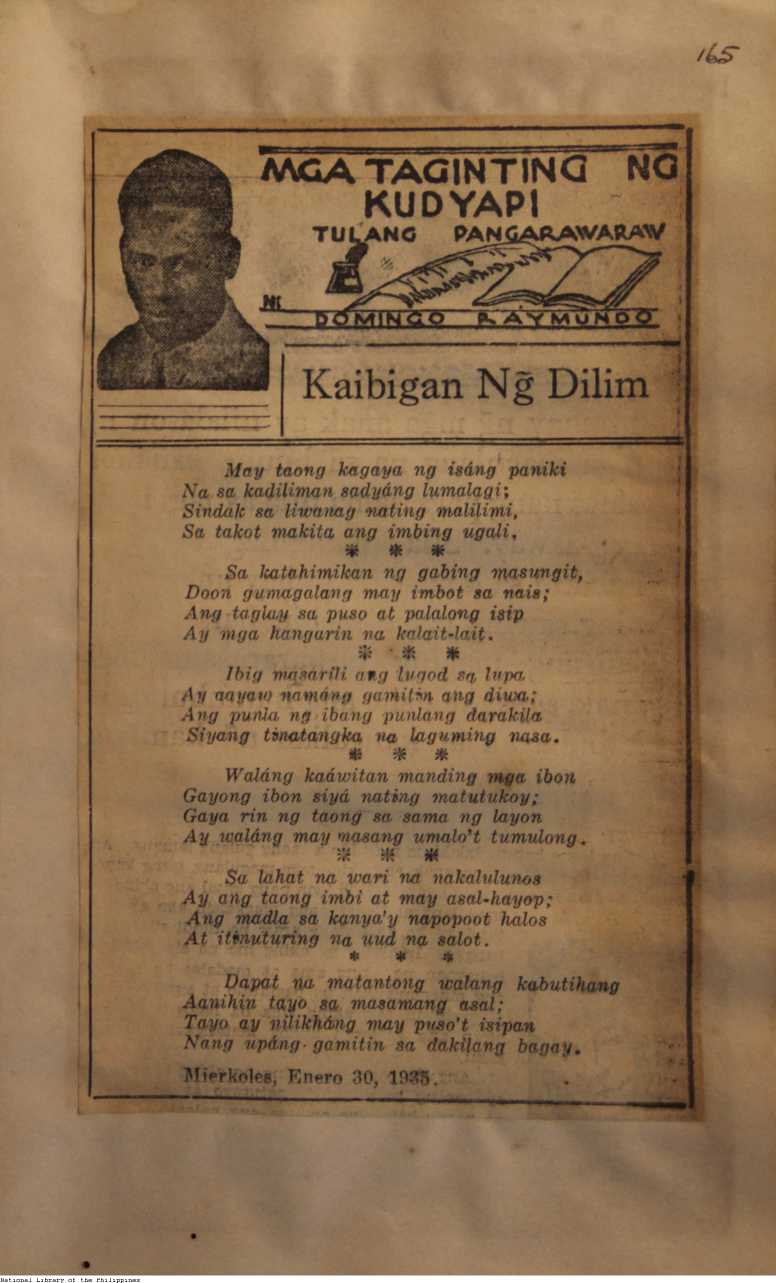 165
MGA TAGINTING NG
KUDYAPI
TULANG PANGARAWARAW
NI
DOMINGO RAYMUNDO
Kaibigan Ng̃ Dilim
May taong kagaya ng isáng paniki
Na sa kadiliman sadyáng lumalagi;
Sindak sa liwanag nating malilimi,
Sa takot makita ang imbing ugali.
* * *
Sa katahimikan ng gabing masungit,
Doon gumagalang may imbot sa nais;
Ang taglay sa puso at palalong isip
Ay mga hangarin na kalait-lait.
* * *
Ibig masarili ang lugod sa lupa
Ay aayaw namáng gamitin ang diwa;
Ang punla ng ibang punlang darakila
Siyang tinatangka na laguming nasa.
* * *
Waláng kaáwitan manding mga ibon
Gayong ibon siyá nating matutukoy;
Gaya rin ng taong sa sama ng layon
Ay waláng may masang umalo't tumulong.
* * *
Sa lahat na wari na nakalulunos
Ay ang taong imbi at may asal-hayop;
Ang madla sa kanya'y napopoot halos
At itinuturing na uud na salot.
* * *
Dapat na matantong walang kabutihang
Aanihin tayo sa masamang asal;
Tayo ay nilikháng may puso't isipan
Nang upáng gamitin sa dakilang bagay.
Mierkoles, Enero 30, 1935.
National Library of the Philippines